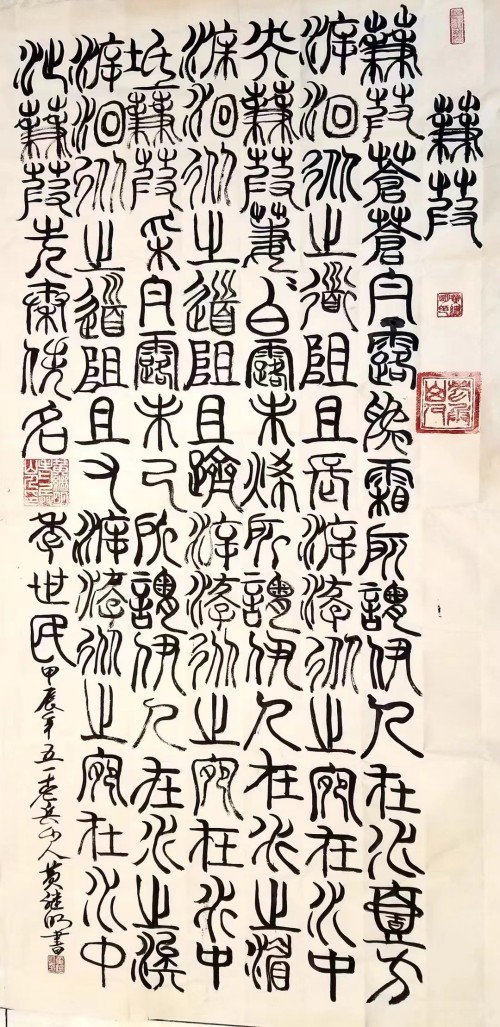 蒹葭
蒹葭蒼蒼白露為霜所謂伊人在水壹方
溯洄從之道阻且長溯游從之宛在水中
央蒹葭萋〻白露未晞所謂伊人在水之湄
溯洄從之道阻且躋溯游從之宛在水中
坻蒹葭采白露未已所謂伊人在水之涘
溯洄從之道阻且右溯游從之宛在水中
沚蒹葭先秦佚名 世民 甲辰年五一老兵人黄继明書